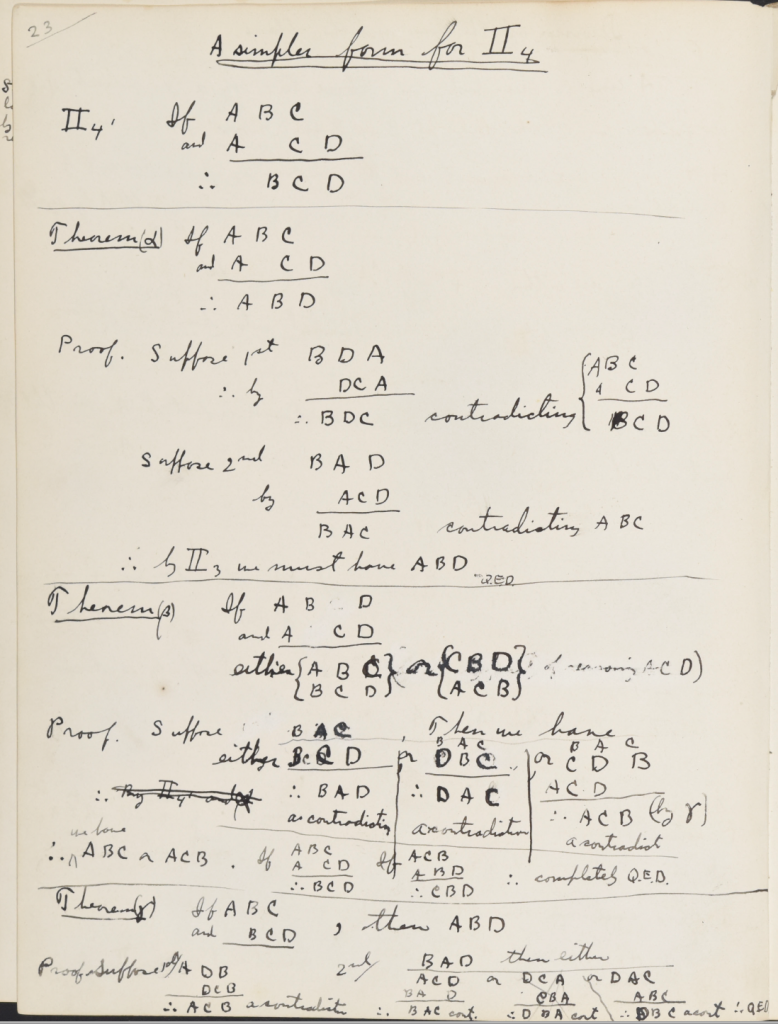 23
A simpler form for II₄
II₄' If A B C
and A C D
∴ B C D
Theorem (α) If A B C
and A C D
∴ A B D
Proof. Suppose 1st B D A
∴ by D C A
∴ B D C contradicting { A B C
A C D
B C D
Suppose 2nd B A D
by A C D
B A C contradicting A B C
∴ by II₃ we must have A B D Q.E.D.
Theorem (β) If A B D
and A C D
either { A B C } or { C B D } of reasoning A C D)
{ B C D } { A C B }
Proof. Suppose B A C, Then we have
either B C D or B A C D B C or B A C C D B
∴ B A D ∴ D A C A C D
a contradiction a contradiction ∴ A C B (by γ)
a contradict
we have
∴ A B C or A C B. If A B C If A C B
A C D A B D
∴ B C D ∴ C B D ∴ completely Q.E.D.
Theorem (γ) If A B C
and B C D, then A B D
Proof. Suppose 1st/ A D B 2nd/ B A D then either
D C B A C D or D C A or D A C
∴ A C B a contradict B A D C B A A B C
∴ B A C cont. ∴ D B A cont ∴ D B C a cont ∴ QED